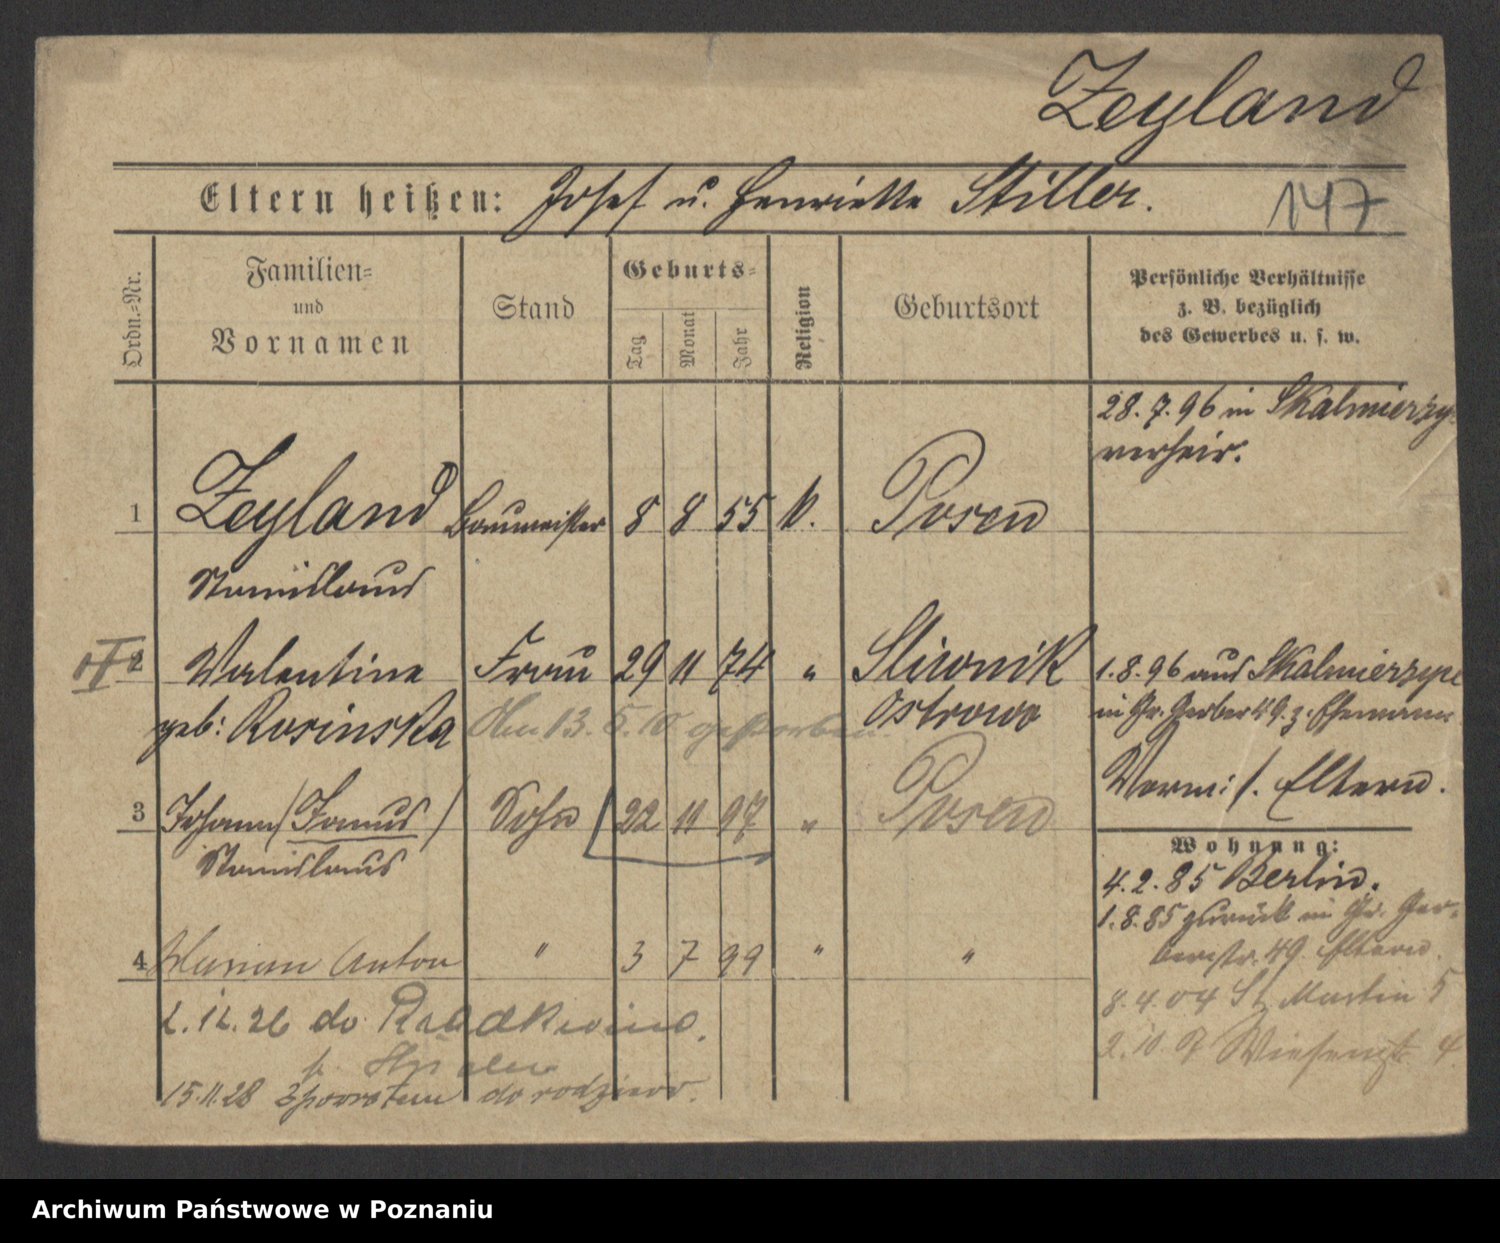 Zeyland
Eltern heißen: Josef u. Henriette Stiller.
147
Ordn.-Nr.
Familien- und Vornamen
Stand
Geburts-
Tag
Monat
Jahr
Religion
Geburtsort
Persönliche Verhältnisse
z. B. bezüglich
des Gewerbes u. s. w.
28. 7. 96 in Skalmierzy
verheir.
1 Zeyland Baumeister 8 8 55 k. Posen
Stanislaus
2 Valentine Frau 29 11 74 " Sliwnik
1. 8. 96 aus Skalmierzyce
geb: Rosinska Ostrowo
13. 5. 10 gestorben.
in Gr. Gerber 49 z. Ehemann
Vorm: s. Eltern.
3 Johann (Janus) Sohn 22 11 97 " Posen
Stanislaus
Wohnung:
4. 2. 85 Berlin.
1. 8. 85 zurück in Gr. Ger-
berstr. 49. Eltern.
4 Marian Anton " 3 7 99 " "
8. 4. 04 St Martin 5
2. 10. 07 Wiesenstr. 4
2. 12. 26 do
15.11.28 z powrotem do rodziców.
Archiwum Państwowe w Poznaniu